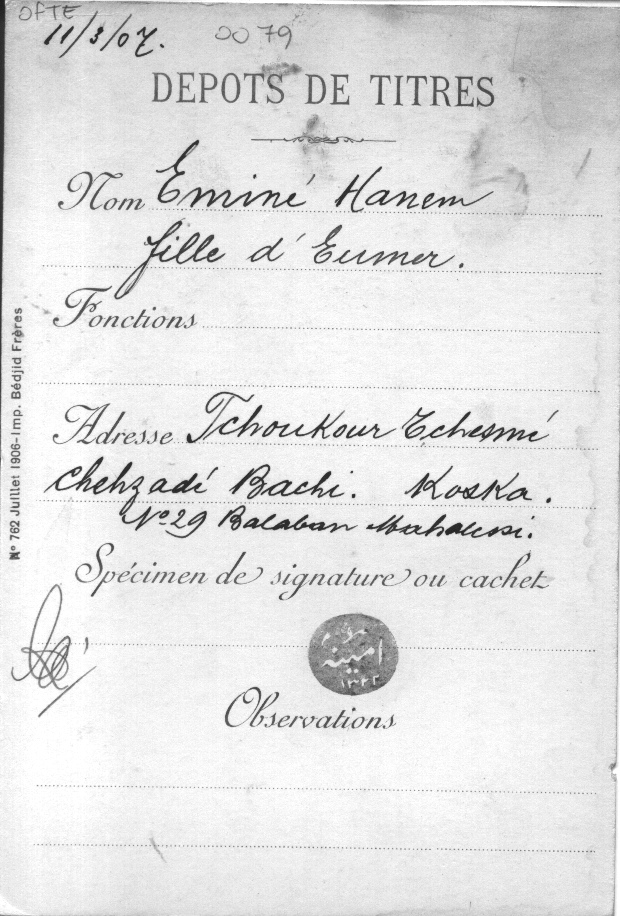 OFTE
11/3/07.
0079
DEPOTS DE TITRES
Nom Eminé Hanem
fille d'Eumer.
Fonctions
Adresse Tchoukour Tchesmé
Chehzadé Bachi. Koska.
Nº 29 Balaban Mahalessi.
Spécimen de signature ou cachet
امينه
١٣٢٢
Observations
Nº 762 Juillet 1906-Imp. Bédjid Frères